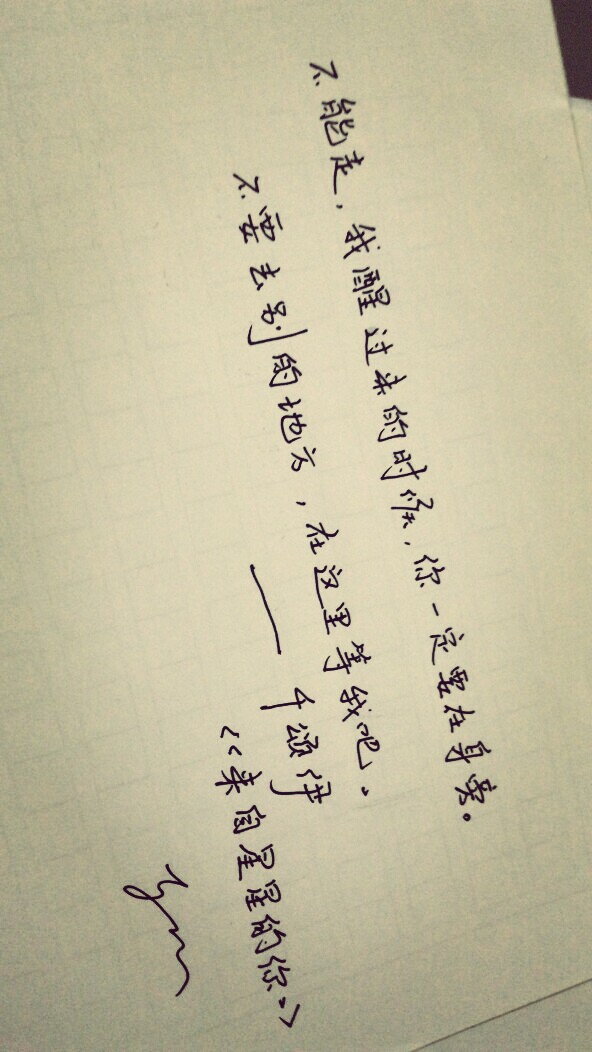 不能走，我醒过来的时候，你一定要在身旁。
不要去别的地方，在这里等我吧。
——千颂伊
《来自星星的你》